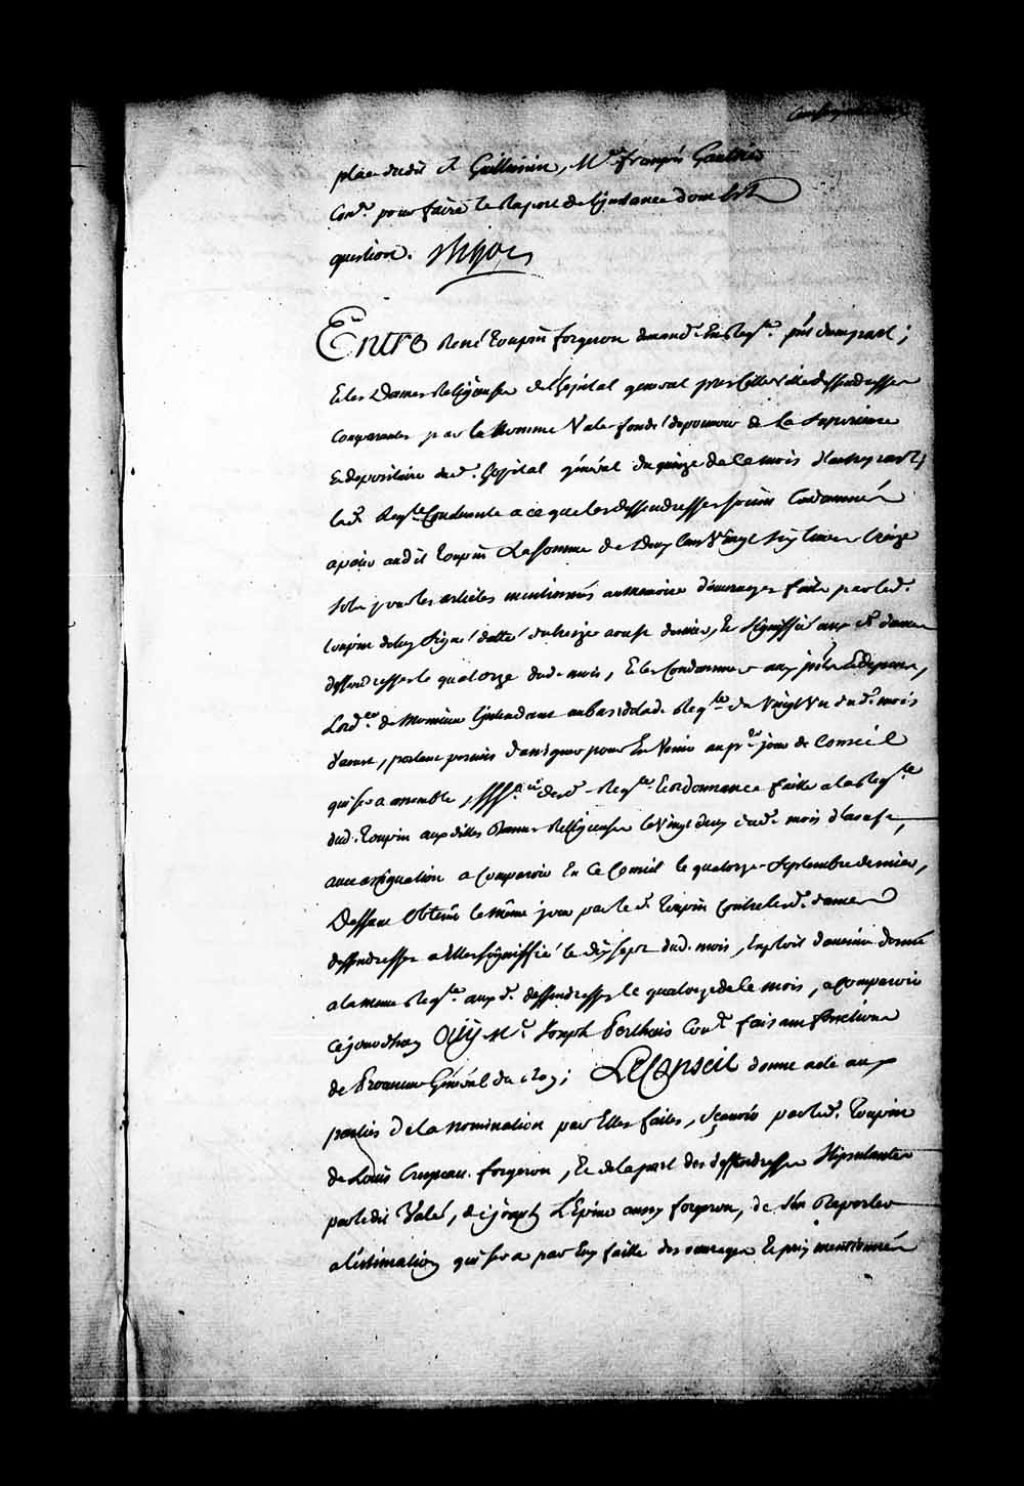 place dudit S. Guillimin, Me. françois Gaultier
Conr. pour faire le Raport de l'instance dont Est
question. Bigot
Entre René Toupin forgeron demandr. En Reqte. pñt d'une part;
Et les Dames Religieuses de l'hopital general pres cette ville deffenderesses
Comparantes par le Nommé Valet fondé de pouvoir de La Superieure
Et depositaire dud. hopital général du quinze de Ce mois d'autre part;
lad. Reqte. Tendante a ce que les deffenderesses soient Condamnées
a païer audit Toupin La somme de Deux Cens Vingt six livres treize
sols pour les articles mentionnés au memoire d'ouvrages faits par led.
Toupin de luy signé datté du treize aoust dernier, Et signiffié aux d. dames
deffenderesses le quatorze dud. mois, Et les Condamner aux interests Et depens,
L'ordce. de Monsieur l'intendant au bas de lad. Reqte. du Vingt Un dud. mois
d'aoust, portant permis d'assigner pour En Venir au pr. jour de Conseil
qui sera assemblé, signiffon. desd. Reqte. Et ordonnance faitte a la Reqte.
dud. Toupin aux dittes Dames Religieuses le Vingt deux dud. mois d'aoust,
avec assignation a Comparoir En Ce Conseil le quatorze Septembre dernier,
Deffaut Obtenu le même jour par le d. Toupin Contre lesd. dames
deffenderesses a Elles signiffié le dix sept dud. mois, Exploit d'avenir donné
a la meme Reqte. aux d. deffenderesses le quatorze de Ce mois, a Comparoir
Cejourdhuy Oüy Me. Joseph Perthuis Conr. faisant fonctions
de Procureur Général du Roy; Le Conseil donne acte aux
parties de la nomination par Elles faites, sçavoir par led. Toupin
de Louis Crepeau forgeron, Et de la part des deffenderesses stipulantes
par ledit Valet, de Joseph L'Epine aussy forgeron, de s'En Raporter
a l'estimation qui sera par Eux faitte des ouvrages Et prix mentionnés